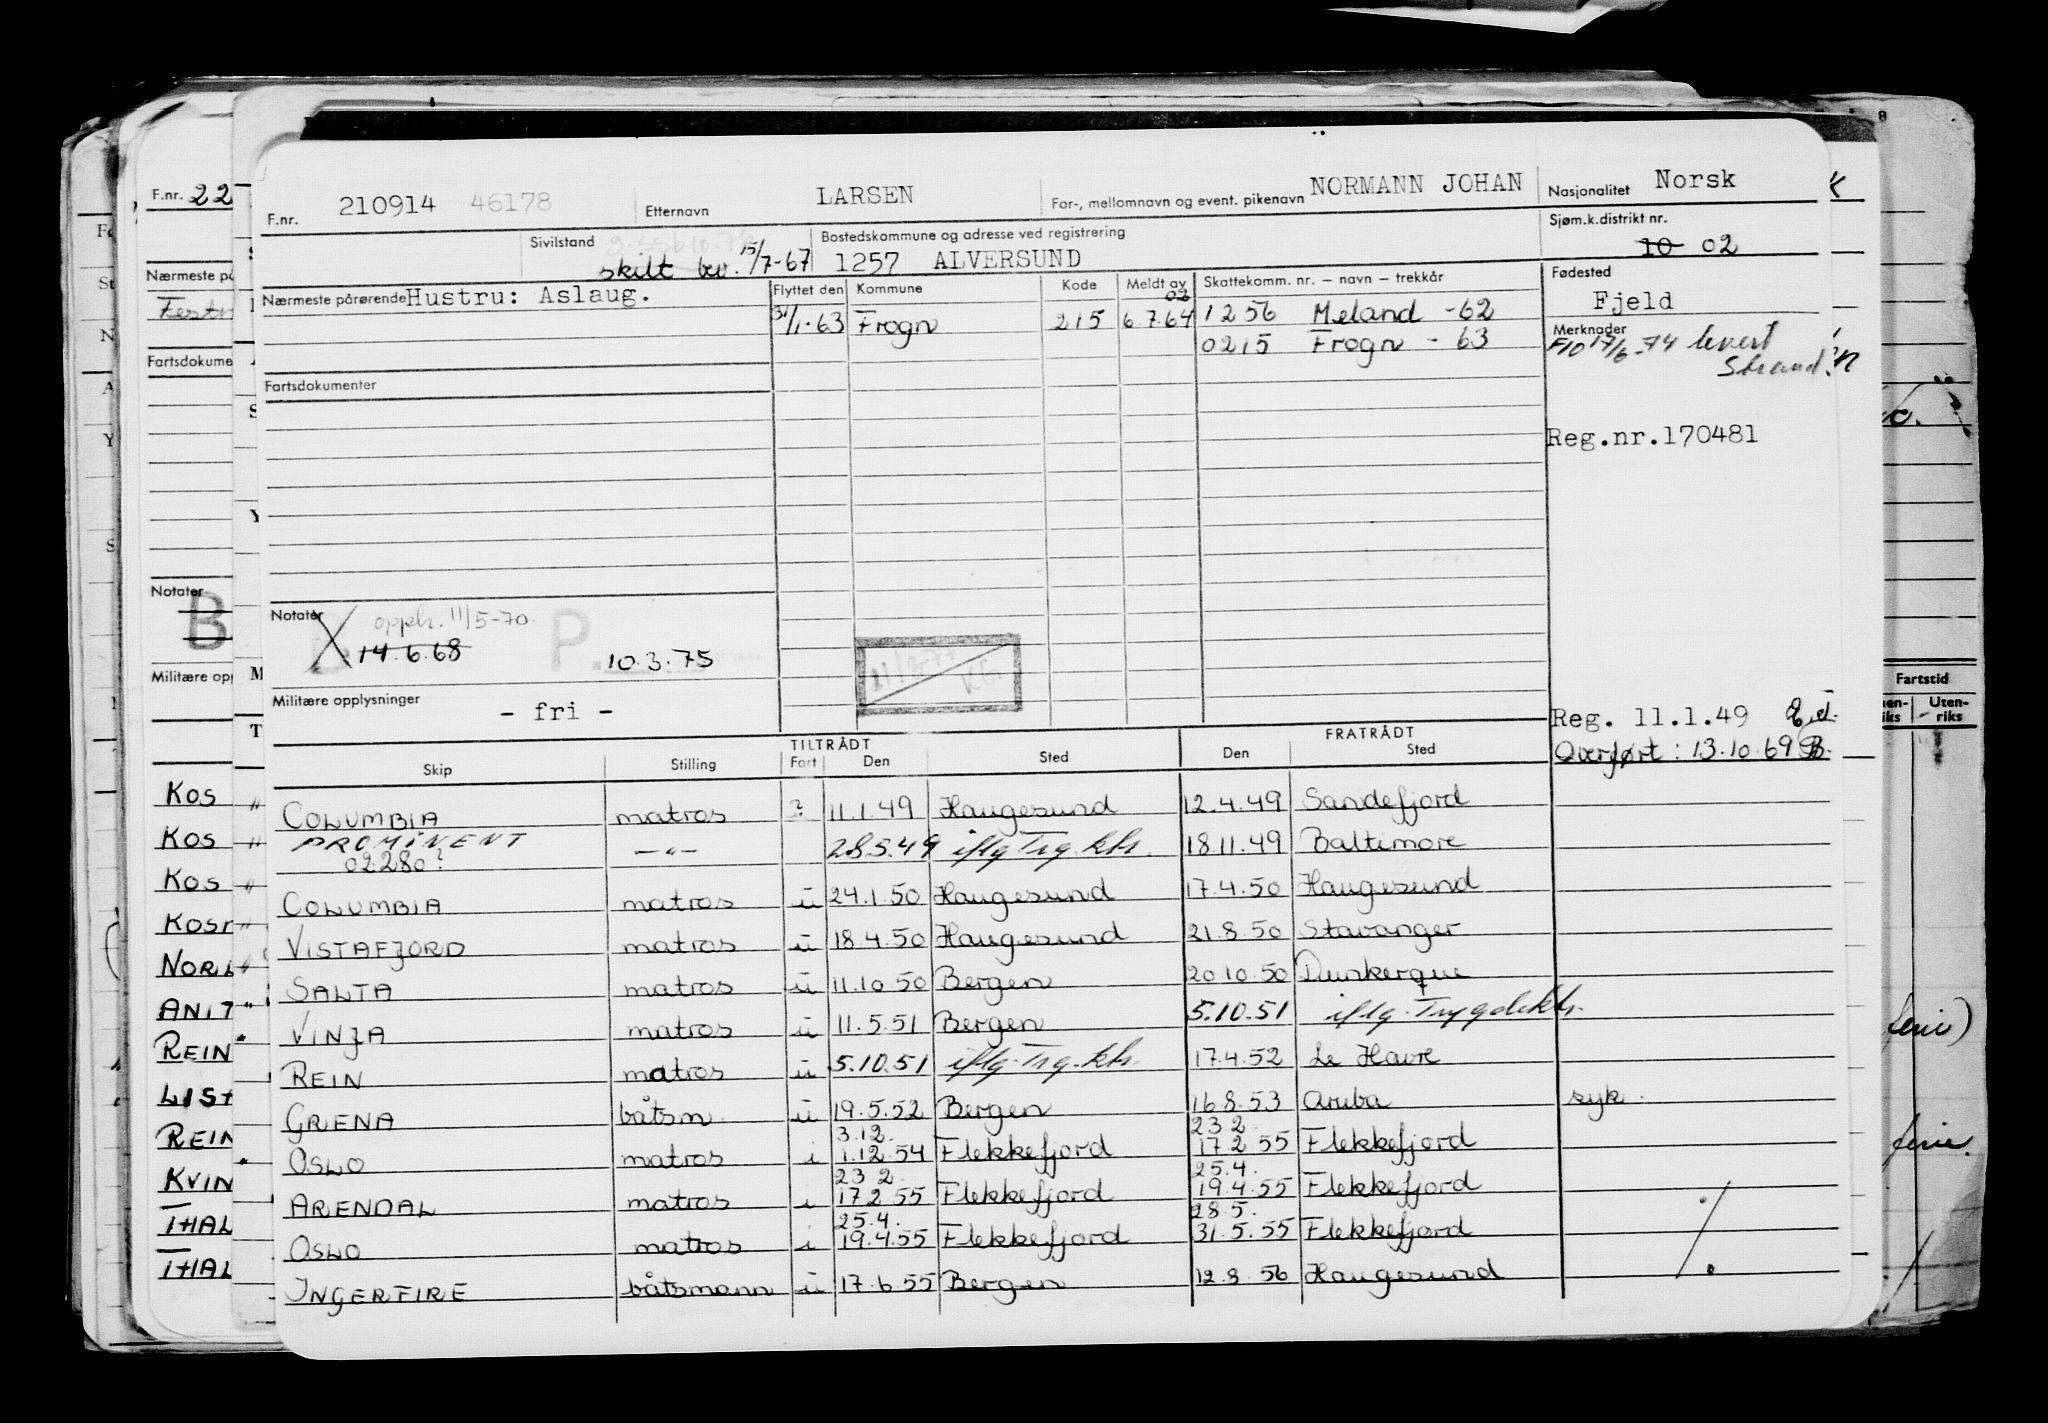 F.nr. 210914 46178 Etternavn LARSEN For-, mellomnavn og event. pikenavn NORMANN JOHAN Nasjonalitet Norsk
Sivilstand skilt bev. 15/7-67 Bostedskommune og adresse ved registrering 1257 ALVERSUND Sjøm.k.distrikt nr. 10 02
Nærmeste pårørende Hustru: Aslaug. Flyttet den Kommune Kode Meldt av Skattekomm. nr. – navn – trekkår Fødested Fjeld
31/1-63 Frogn 215 02 6.7.64 1256 Meland -62
0215 Frogn - 63
Merknader
F10 17/6-74 levert
Strand.
Fartsdokumenter
Reg.nr.170481
Notater opph. 11/5-70.
14.6.68 P. 10.3.75
Militære opplysninger - fri -
Reg. 11.1.49
Overført: 13.10.69 B.
TILTRÅDT FRATRÅDT
Skip Stilling Fart Den Sted Den Sted
COLUMBIA matros ? 11.1.49 Haugesund 12.4.49 Sandefjord
PROMINENT —"— 28.5.49 iflg Trg.ktr. 18.11.49 Baltimore
02280?
COLUMBIA matros u 24.1.50 Haugesund 17.4.50 Haugesund
VISTAFJORD matros u 18.4.50 Haugesund 21.8.50 Stavanger
SALTA matros u 11.10.50 Bergen 20.10.50 Dunkerque
VINJA matros u 11.5.51 Bergen 5.10.51 iflg. Trygdektr.
REIN matros u 5.10.51 iflg. Trg.ktr. 17.4.52 Le Havre
GRENA båtsm. u 19.5.52 Bergen 16.8.53 Aruba syk.
3.12. 23 2
OSLO matros i 1.12.54 Flekkefjord 17 2.55 Flekkefjord
23 2. 25.4.
ARENDAL matros i 17 2.55 Flekkefjord 19.4.55 Flekkefjord
25.4. 28 5.
OSLO matros i 19.4.55 Flekkefjord 31.5.55 Flekkefjord
INGERFIRE båtsmann u 17.6.55 Bergen 12.8.56 Haugesund
F.nr. 22
Nærmeste på
Fartsdokume
Notater
B
Militære opp
KOS
KOS
KOS
KOSM
NORL
ANIT
REIN
LIST
REIN
KVIN
THAL
THAL
Fartstid
Uten-
riks
ferie)
ferie.